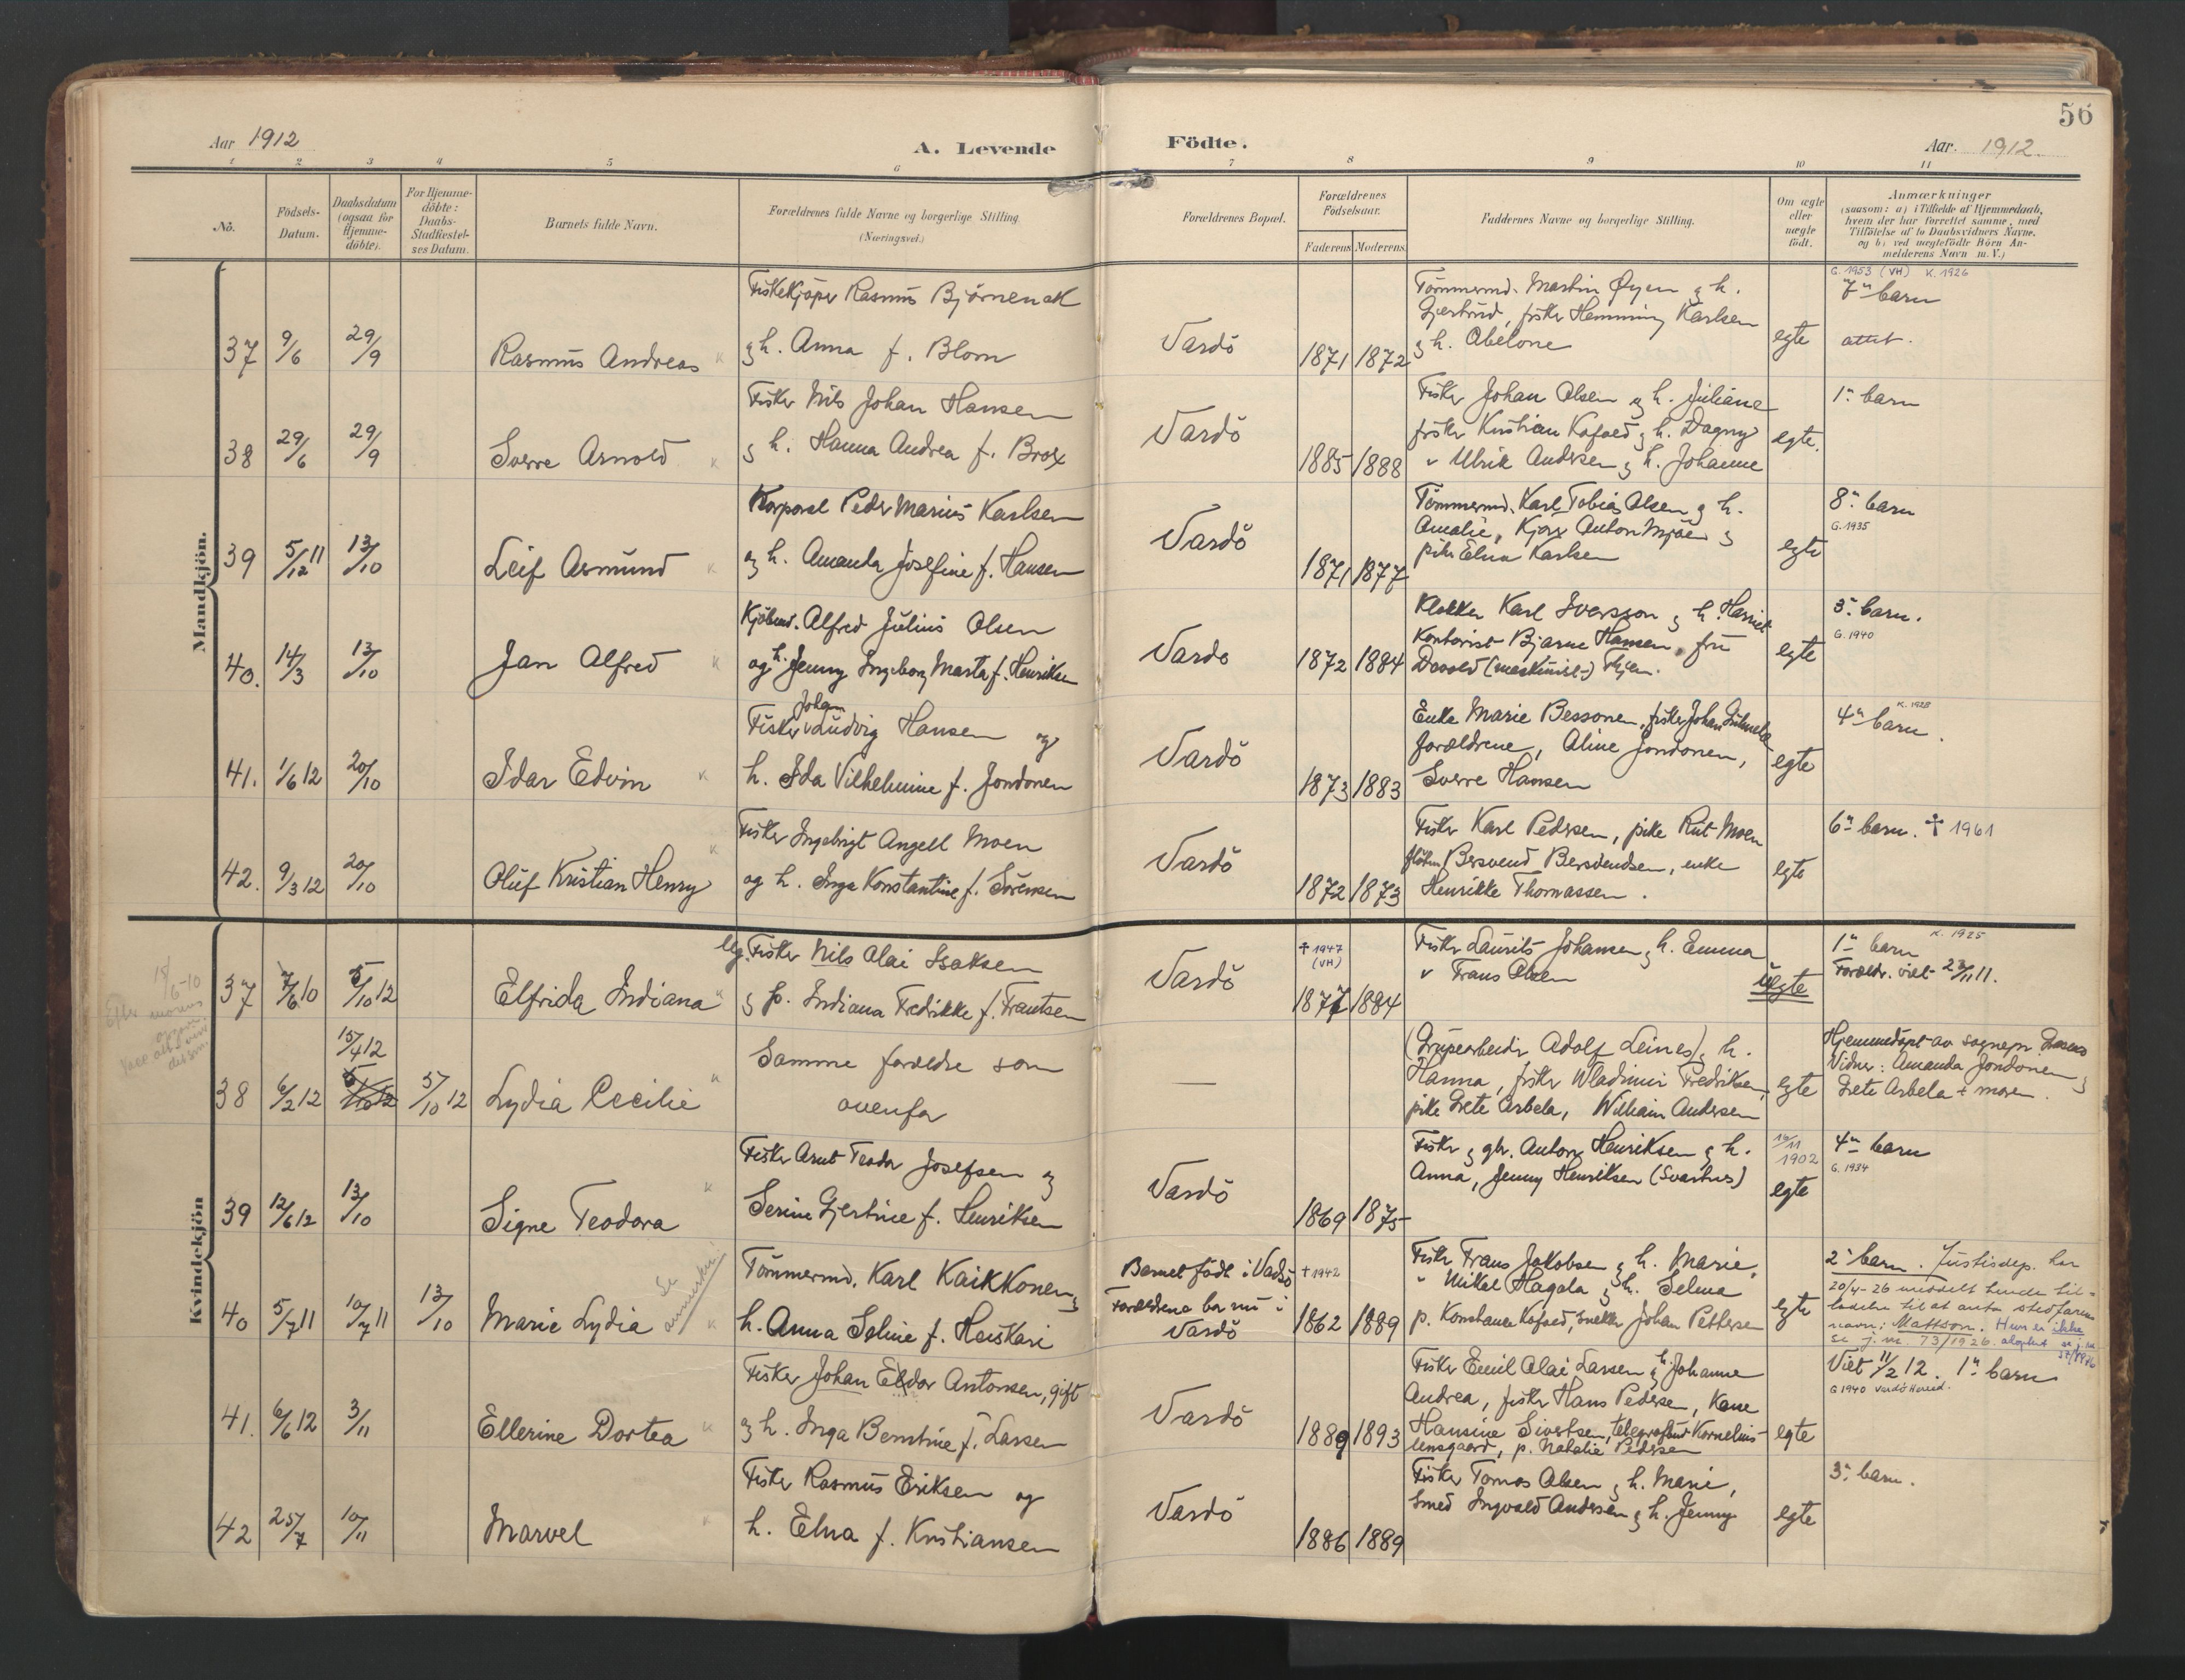 56
Aar 1912
A. Levende Födte.
Aar. 1912.
1 2 3 4 5 6 7 8 9 10 11
Nô.
Födsels-
Datum.
Daabsdatum
(ogsaa for
Hjemme-
döbte).
For Hjemme-
döbte:
Daabs-
Stadfæstel-
ses Datum.
Barnets fulde Navn.
Forældrenes fulde Navne og borgerlige Stilling.
(Næringsvei.)
Forældrenes Bopæl.
Forældrenes
Födselsaar.
Faderens Moderens
Faddernes Navne og borgerlige Stilling.
Om ægte
eller
uægte
födt.
Anmærkninger
(saasom: a) i Tilfælde af Hjemmedaab,
hvem der har forrettet samme, med
Tilföielse af to Daabsvidners Navne.
og b) ved uægtefödte Börn An-
melderens Navn m. V.)
Mandkjön.
37 9/6 29/9 Rasmus Andreas
Fiskekjöper Rasmus Björnenak
og h. Anna f. Blom
Vardö 1871 1872
Tömmermd. Martin Øyen og h.
Gjertrud, fisker Hemming Karlsen
og h. Abelone
egte
G. 1953 (VH) K. 1926
7n barn
attest.
38 29/6 29/9 Sverre Arnold
Fisker Nils Johan Hansen
og h. Hanna Andrea f. Brox
Vardö 1885 1888
Fisker Johan Olsen og h. Juliane
fisker Kristian Kofoed og h. Dagny
" Ulrik Andersen og h. Johanne
egte.
1n barn
39 5/12 11 13/10 Leif Asmund
Korporal Peder Marius Karlsen
og h. Amanda Josefine f. Hansen
Vardö 1871 1877
Tömmermd. Karl Tobias Olsen og h.
Amalie, Kjöx Anton Mjoen og
pike Elna Karlsen
egte
8n barn
G. 1935
40. 14/3 13/10 Jan Alfred
Kjöbmd. Alfred Julius Olsen
og h. Jenny Ingeborg Marta f. Henriksen
Vardö 1872 1884
Klokker Karl Iversson og h. Harriet
Kontorist Bjarne Hansen, fru
Davold (maskinist) Hjem.
egte
3n barn.
G. 1940
41. 1/6 12 20/10 Idar Edvin
Johan
Fisker Ludvig Hansen og
h. Ida Vilhelmine f. Jondonen
Vardö 1873 1883
Enke Marie Bessonen, fisker Johan
forældrene, Aline Jondonen,
Sverre Hansen
egte
K. 1928
4n barn.
42. 9/3 12 20/10 Oluf Kristian Henry
Fisker Ingebrigt Angell Moen
og h. Inga Konstantine f. Sörensen
Vardö 1872 1873
Fisker Karl Pedersen, pike Rut Moen
Bersvend Bersvendsen, enke
Henrikke Thomassen.
egte
6n barn. † 1961
Kvindekjön
15/6-10
Efter morens
37 7/6 10 5/10 12 Elfrida Indiana
Ug. Fisker Nils Olai Isaksen
og p. Indiana Fredrikke f. Frantsen
Vardö
† 1947
(VH)
1877 1884
Fisker Laurits Johansen og h. Emma
" Frans Olsen
uegte
K. 1925
1n barn
Forældr. viet 23/11 11.
38 6/2 12 15/4 12 5/10 12 5/10 12 Lydia Cecilie
Samme forældre som
ovenfor
—
(Grubearbeider Adolf Leines) og h.
Hanna, fisker Wladimir Fredriksen,
pike Grete Arbela, William Andersen
egte
Hjemmedöpt av sognepr.
Vidner: Amanda Jondonen og
Grete Arbela + moren.
39 12/6 12 13/10 Signe Teodora
Fisker Arnt Teodor Josefsen og
Serine Gjertine f. Henriksen
Vardö 1869 1875
Fisker og gbr. Anton Henriksen og h.
Anna, Jenny Henriksen (Svartnes)
16/11
1902
egte
4n barn
G. 1934
40 5/7 11 10/7 11 13/10 Marie Lydia
Se anmerkn.
Tömmermd. Karl Kaikkonen og
h. Anna Seline f. Heiskari
Barnet födt i Vadsö
Forældrene bor nu i
Vardö
† 1942
1862 1889
Fisker Frans Jakobsen og h. Marie,
" Mikal Hagala og h. Selma
p. Konstanse Kofoed, snekker Johan Pettersen
egte
2n barn. Justisdep. har
20/4-26 meddelt hende til-
ladelse til at anta stedfarens
navn: Mattson. Hun er ikke
se j. nr. 73/1926. adoptert se j. nr.
37/1926
41. 6/6 12 3/11 Ellerine Dortea
Fisker Johan Eldor Antonsen, gift
og h. Inga Berntine f. Larsen
Vardö 1889 1893
Fisker Emil Olai Larsen og h. Johanne
Andrea, fisker Hans Pedersen, Kone
Hansine Sivertsen, telegrafbud Kornelius
Unsgaard, p. Natalie Pedersen
egte
Viet 11/2 12. 1n barn
G 1940 Vardö Herred.
42 25/7 10/11 Marvel
Fisker Rasmus Eriksen og
h. Elna f. Kristiansen
Vardö 1886 1889
Fisker Tomas Olsen og h. Marie,
Smed Ingvald Andersen og h. Jenny
egte
3n barn.